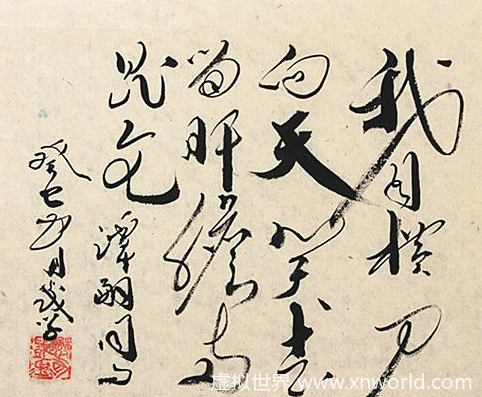 我自横刀
向天笑去
留肝膽两
昆仑
譚嗣同句
癸巳月
虚拟世界 www.xnworld.com